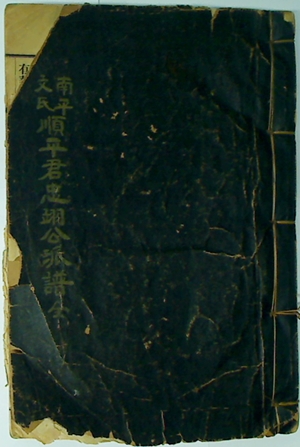 南平文氏順平君忠翊公派譜全